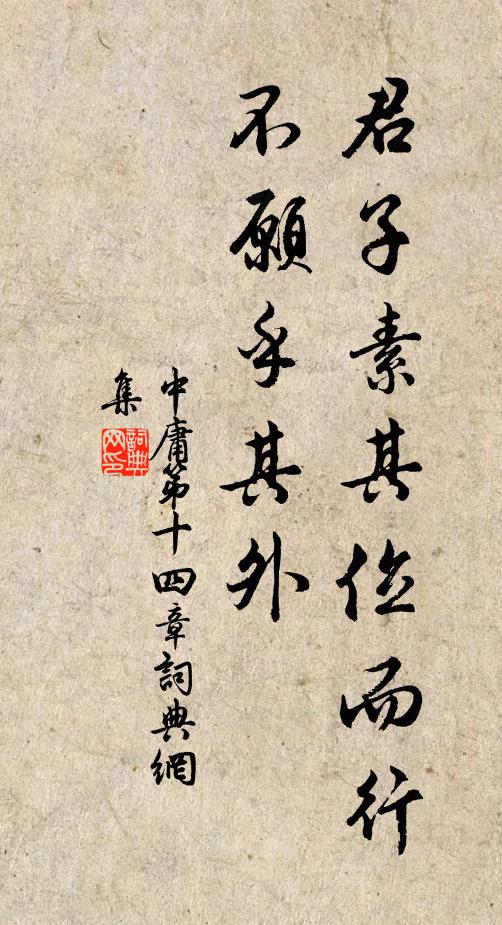 君子素其位而行
不願乎其外
中庸第十四章詞典網
集
詞典網印